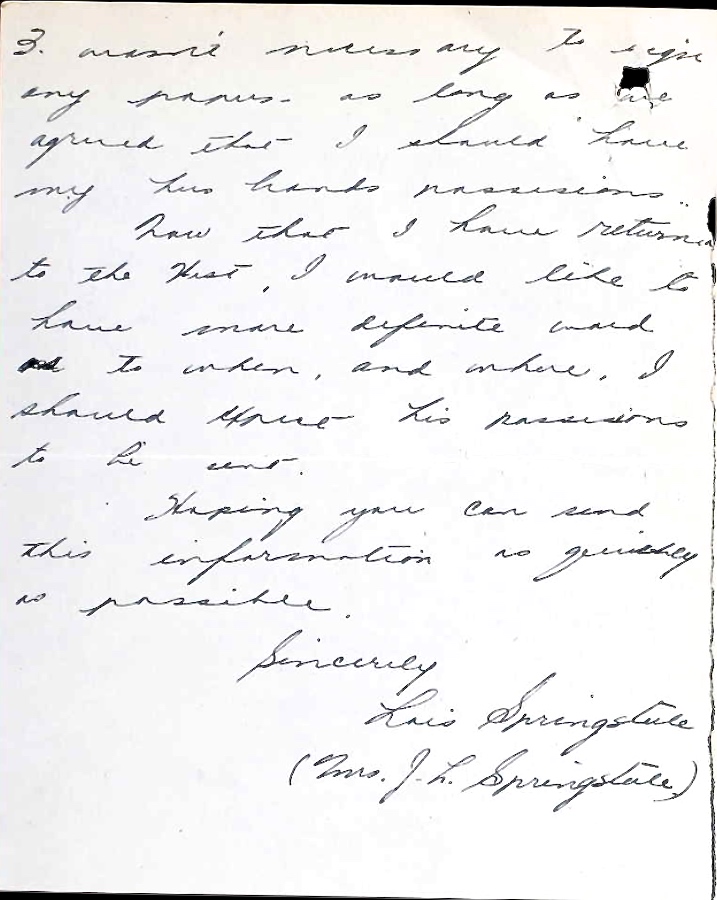 3. wasn't necessary to sign
any papers. as long as we
agreed that I should have
my husbands possesions..
Now that I have return
to the West, I would like to
have more definite word
as to when, and where, I
should expect his possesions
to be sent.
Hoping you can send
this information as quickly
as possible.
Sincerely
Lois Springstule
(Mrs. J. L. Springstule)